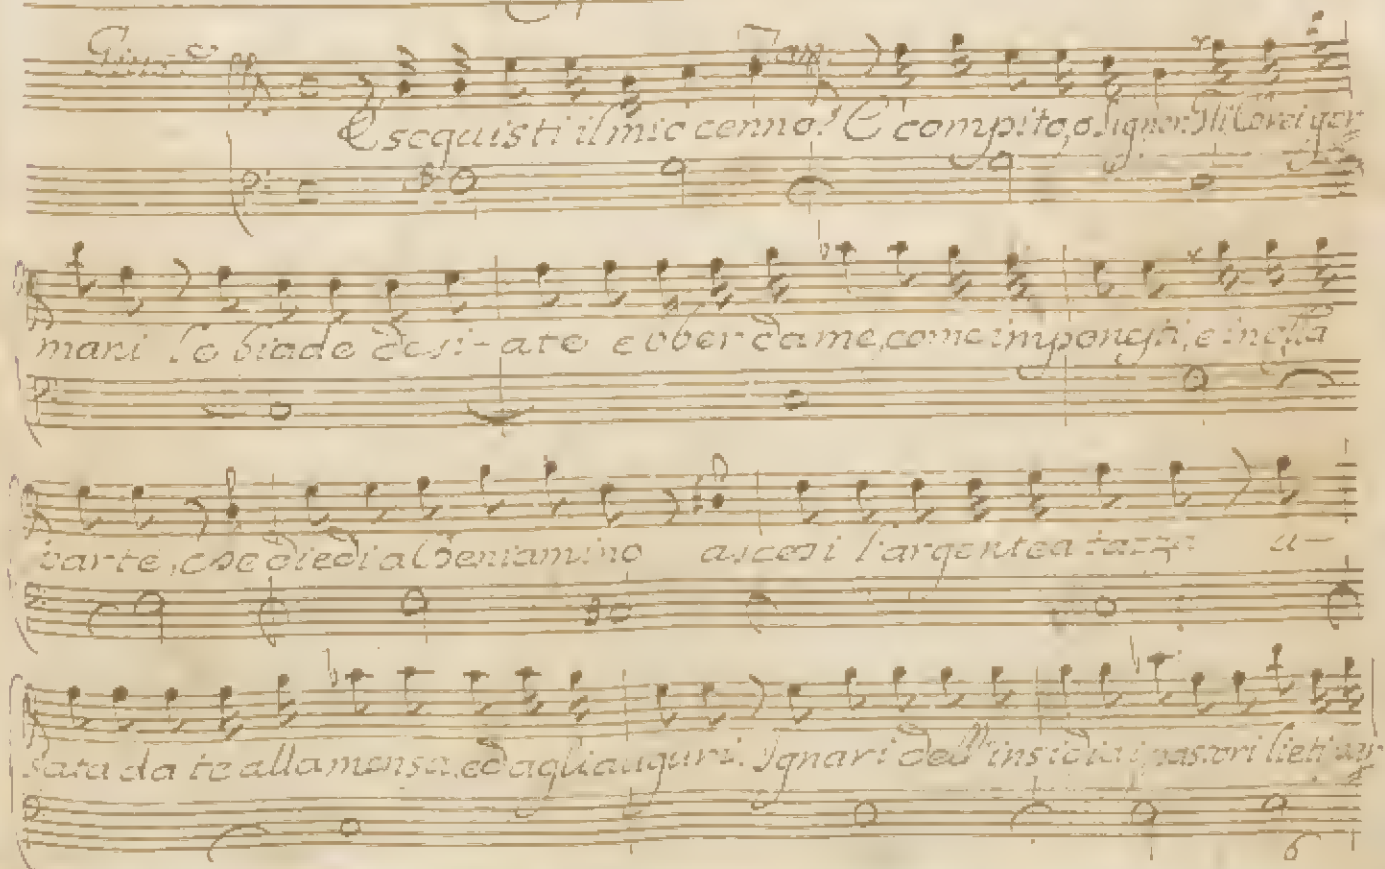 Esequisti il mio cenno? E' compito, o Signor.
mani le biade desi-ate ebber da me, come imponesti, e in essa
parte, che diedi a Beniamino ascosi l'argentea tazza u-
sata da te alla mensa, ed agli auguri. Ignari dell'insidia i pastori lieti
6